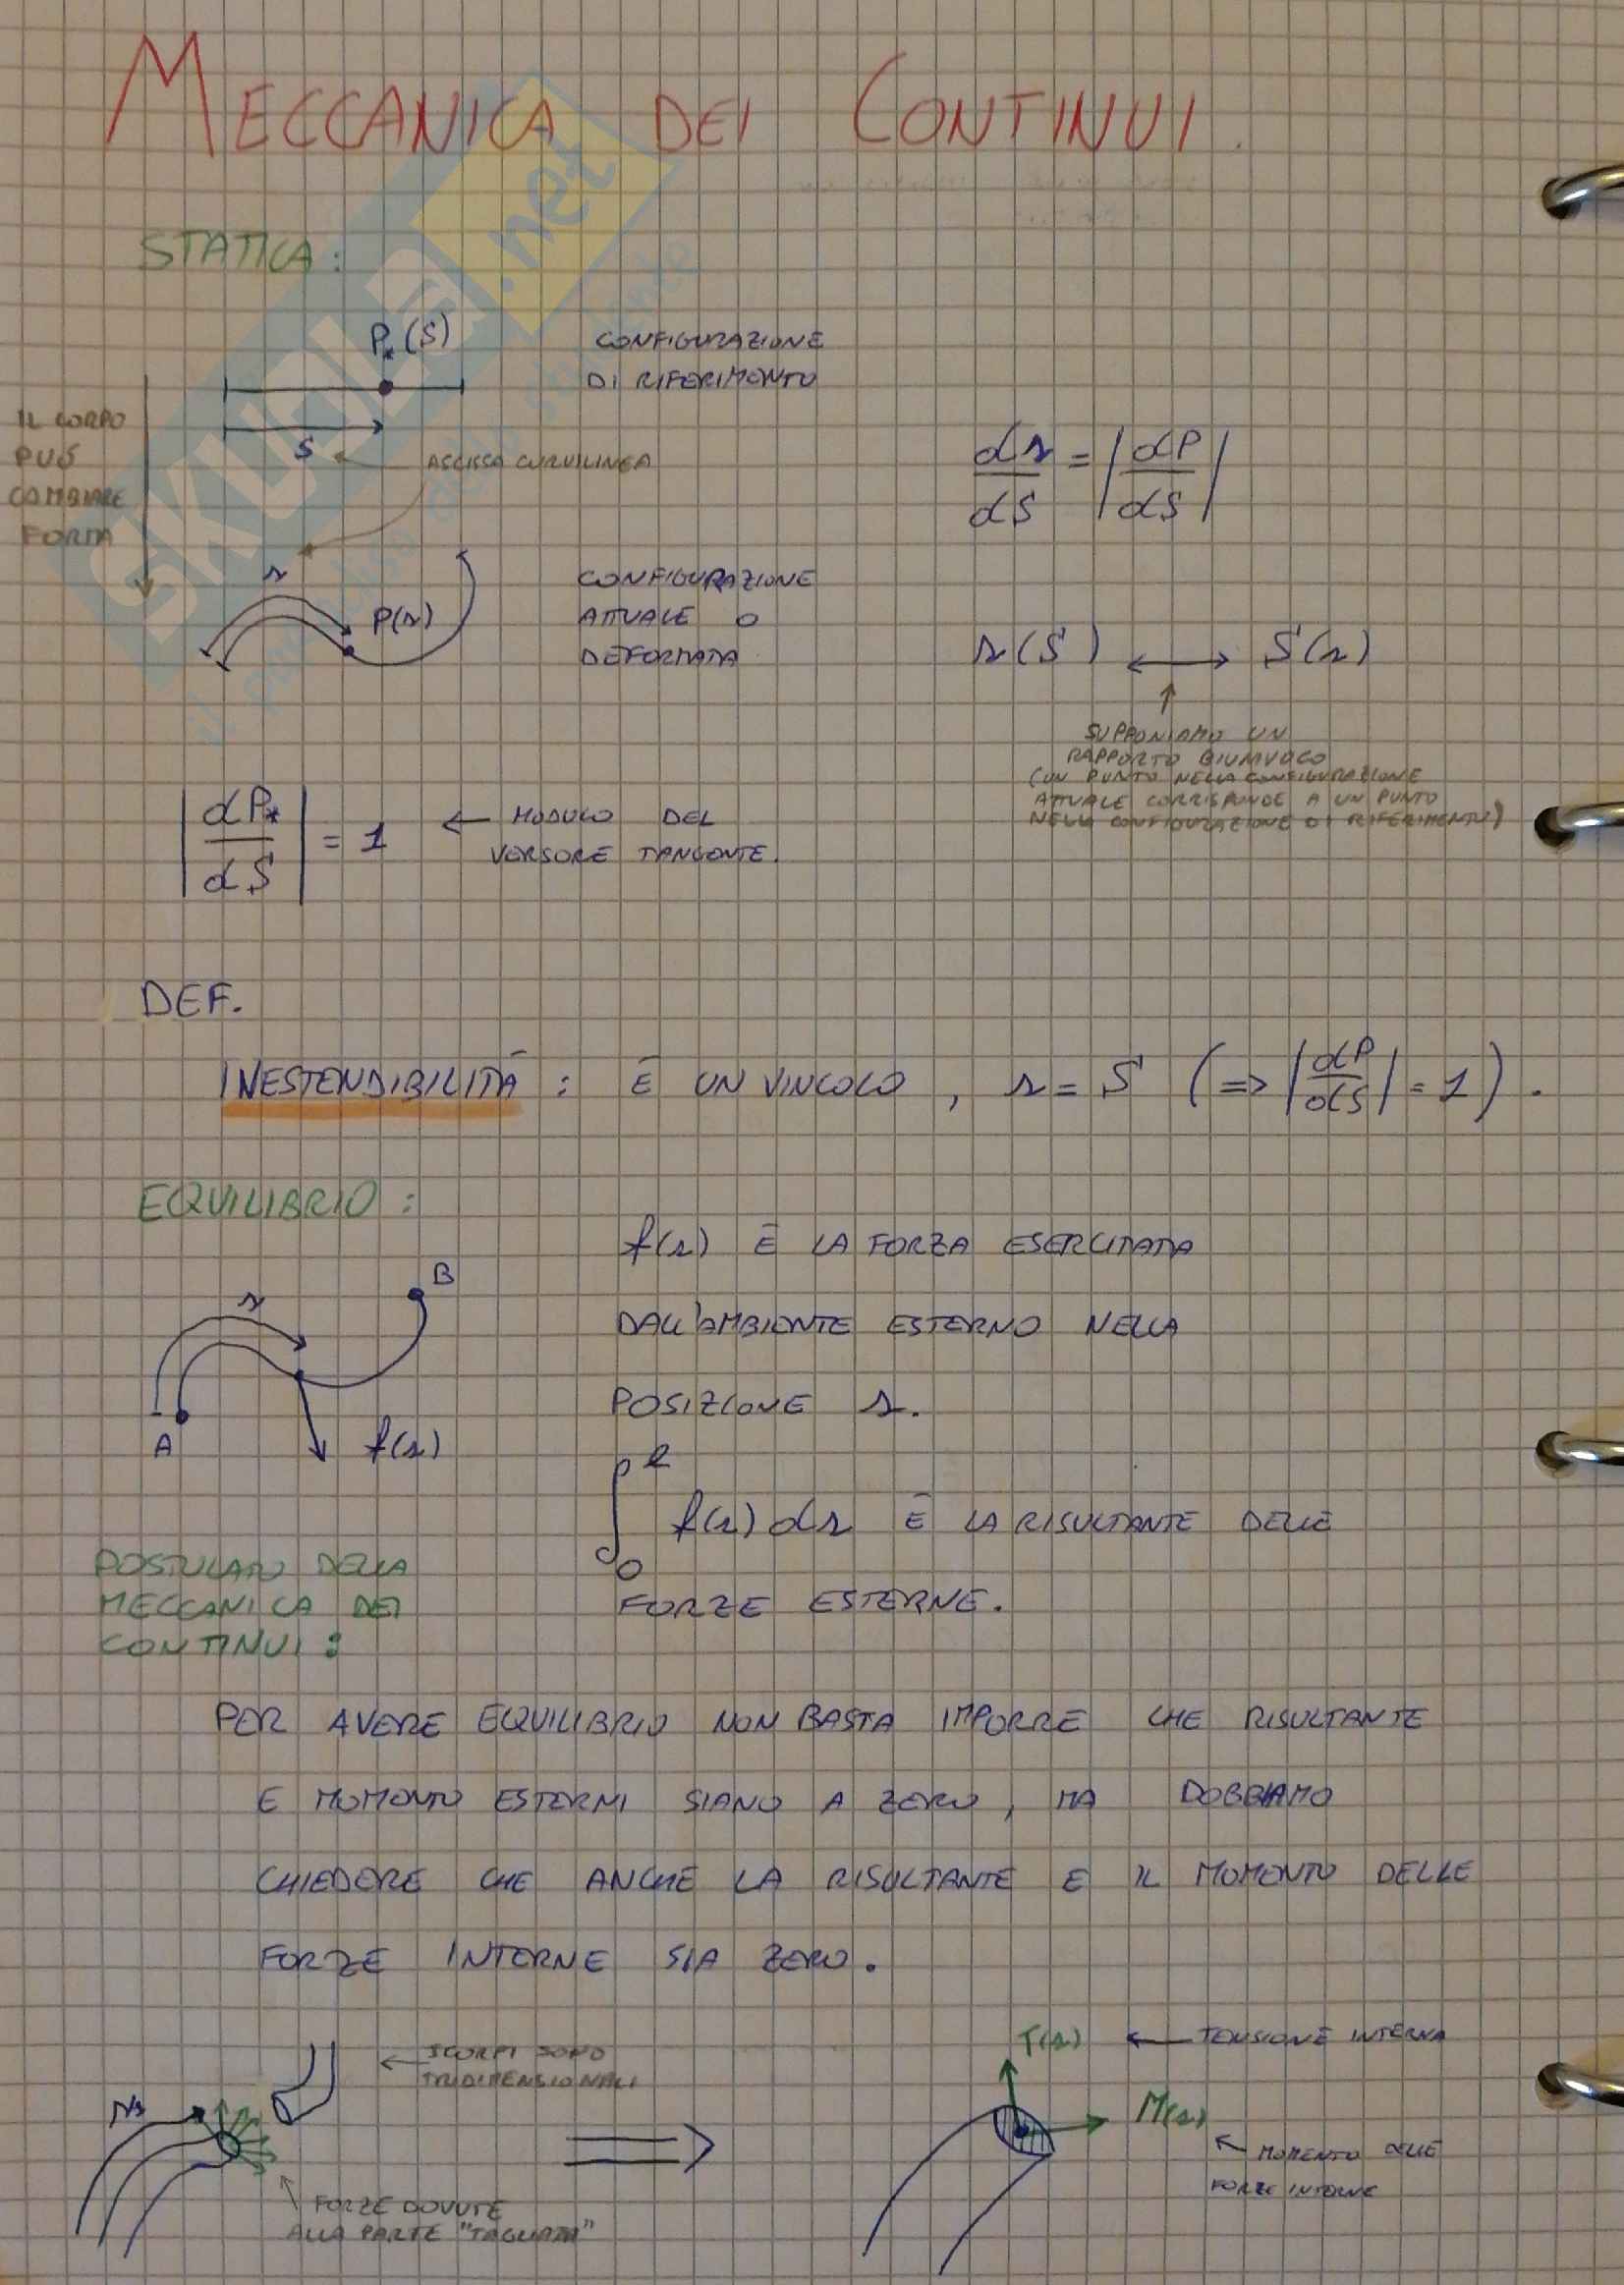 MECCANICA DEI CONTINUI.
STATICA:
P*(S)
CONFIGURAZIONE
DI RIFERIMENTO
IL CORPO
PUÒ
CAMBIARE
FORMA
S
ASCISSA CURVILINEA
ds/dS = |dP/dS|
s
P(s)
CONFIGURAZIONE
ATTUALE O
DEFORMATA
s(S) ↔ S(s)
SUPPONIAMO UN
RAPPORTO BIUNIVOCO
(UN PUNTO NELLA CONFIGURAZIONE
ATTUALE CORRISPONDE A UN PUNTO
NELLA CONFIGURAZIONE DI RIFERIMENTO)
|dP*/dS| = 1 ← MODULO DEL
VERSORE TANGENTE.
DEF.
INESTENDIBILITÀ : È UN VINCOLO, s = S (=> |dP/dS| = 1).
EQUILIBRIO:
f(s) È LA FORZA ESERCITATA
DALL'AMBIENTE ESTERNO NELLA
POSIZIONE s.
A
s
B
f(s)
∫ 0 ℓ f(s) ds È LA RISULTANTE DELLE
FORZE ESTERNE.
POSTULATO DELLA
MECCANICA DEI
CONTINUI:
PER AVERE EQUILIBRIO NON BASTA IMPORRE CHE RISULTANTE
E MOMENTO ESTERNI SIANO A ZERO, MA DOBBIAMO
CHIEDERE CHE ANCHE LA RISULTANTE E IL MOMENTO DELLE
FORZE INTERNE SIA ZERO.
← I CORPI SONO
TRIDIMENSIONALI
FORZE DOVUTE
ALLA PARTE "TAGLIATA"
T(s) ← TENSIONE INTERNA
M(s)
MOMENTO DELLE
FORZE INTERNE
SKUOLA.net